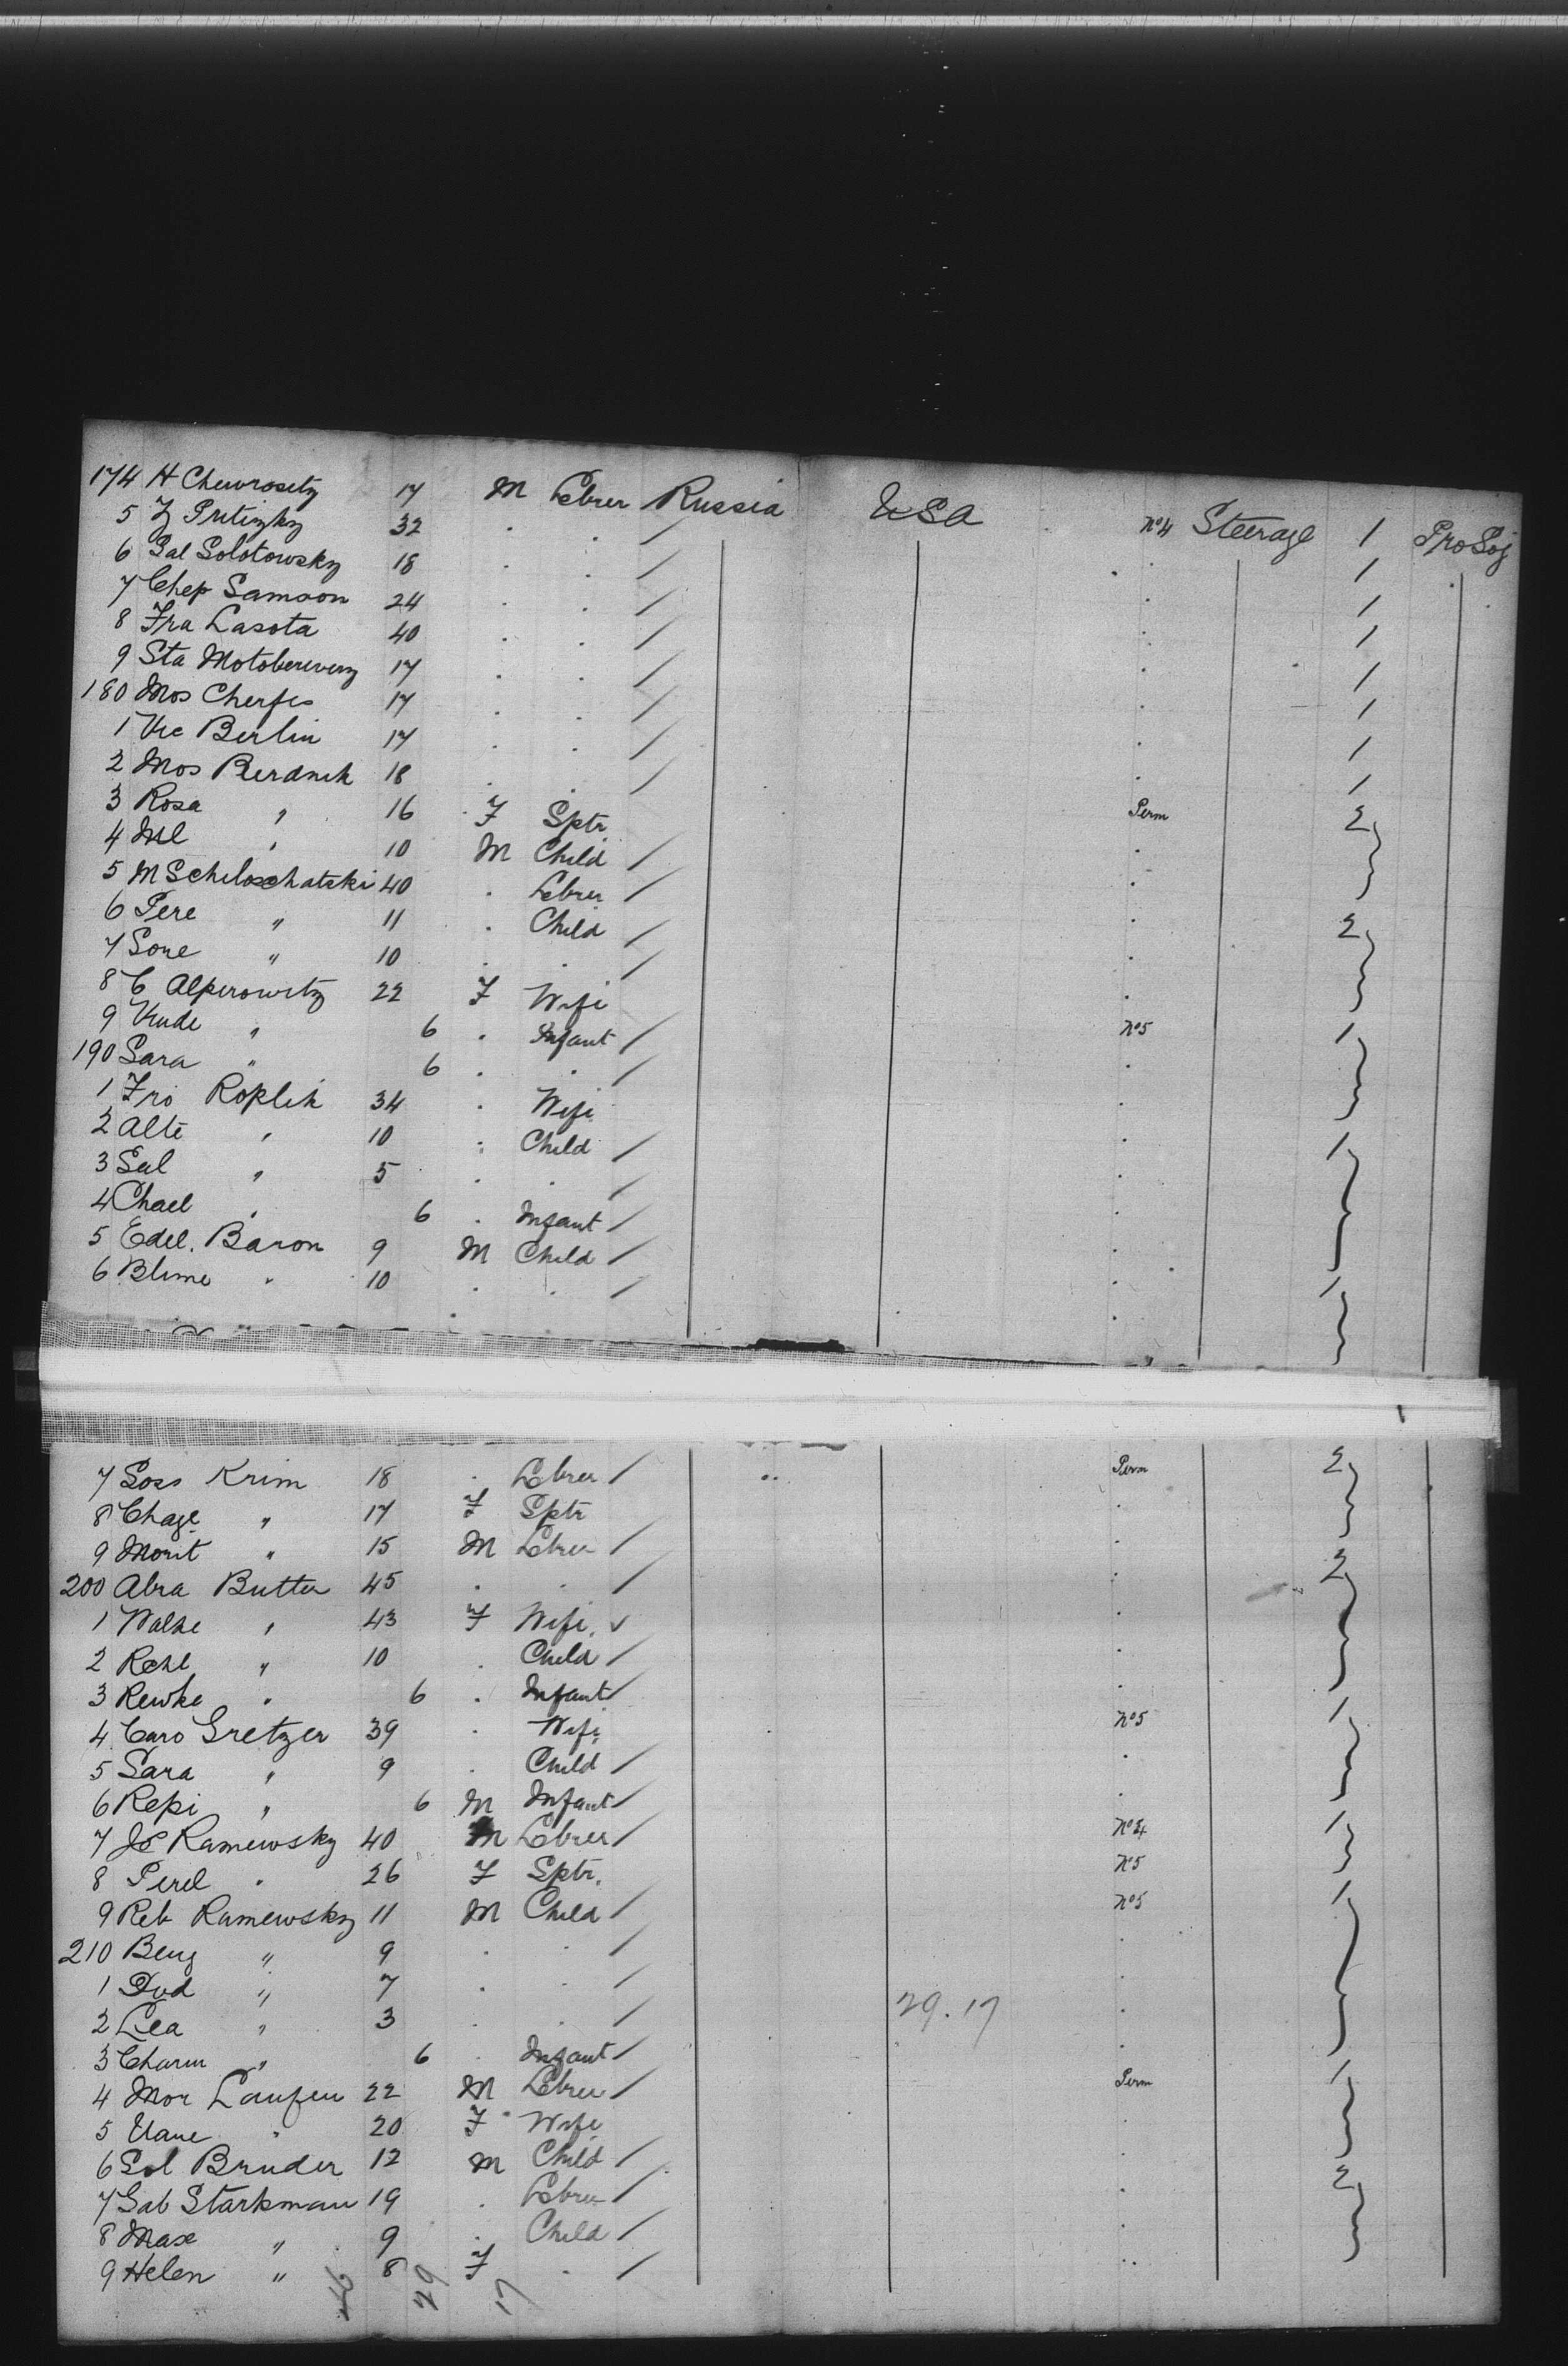 174 H Chewrositz 17 M Lebrer Russia USA No 4 Steerage 1 Pro Soj
5 Z Pritizky 32 . . / . 1
6 Sal Solotowsky 18 . . / . 1
7 Chep Samson 24 . . / . 1
8 Fra Lasota 40 . . / . 1
9 Sta 17 . . / . 1
180 Mos Cherfes 17 . . / . 1
1 Berlin 17 . . / . 1
2 Mos Berdnik 18 . . /
3 Rosa " 16 F Sptr Perm 2
4 Ml " 10 M Child / .
5 M Scheloschatski 40 . Lebrer / .
6 Pere " 11 . Child / . 2
7 Sore " 10 . . / .
8 C Alperowitz 22 F Wife .
9 " 6 . Infant / No 5 1
190 Sara " 6 . . / .
1 Fro Roplik 34 . Wife .
2 Alte " 10 . Child / . 1
3 Sal " 5 . . / .
4 Chael " 6 . Infant / .
5 Edel. Baron 9 M Child / .
6 Blime " 10 . . / . 1
7 Soss Krim 18 . Lebrer / Perm 2
8 Chage " 17 F Sptr .
9 Morit " 15 M Lebrer / .
200 Abra Butter 45 . . / . 2
1 Walke " 43 F Wife . ✓ .
2 Rchl " 10 . Child / .
3 Rewke " 6 . Infant / .
4 Caro Gretzer 39 . Wife No 5 1
5 Sara " 9 . Child / .
6 Repi " 6 M Infant / .
7 Ramewsky 40 M Lebrer / No 4 1
8 Perel " 26 F Sptr. No 5
9 Reb Ramewsky 11 M Child / No 5 1
210 Beng " 9 . . / .
1 Dvd " 7 . . / .
2 Lea " 3 . . / 29.17 .
3 Charm " 6 . Infant / .
4 Mor Laufer 22 M Lebrer / Perm 1
5 " 20 F Wife .
6 Sol Bruder 12 M Child / .
7 Sab Starkman 19 . Lebrer / . 2
8 Max " 9 . Child / .
9 Helen " 8 F . / .
46 29 17